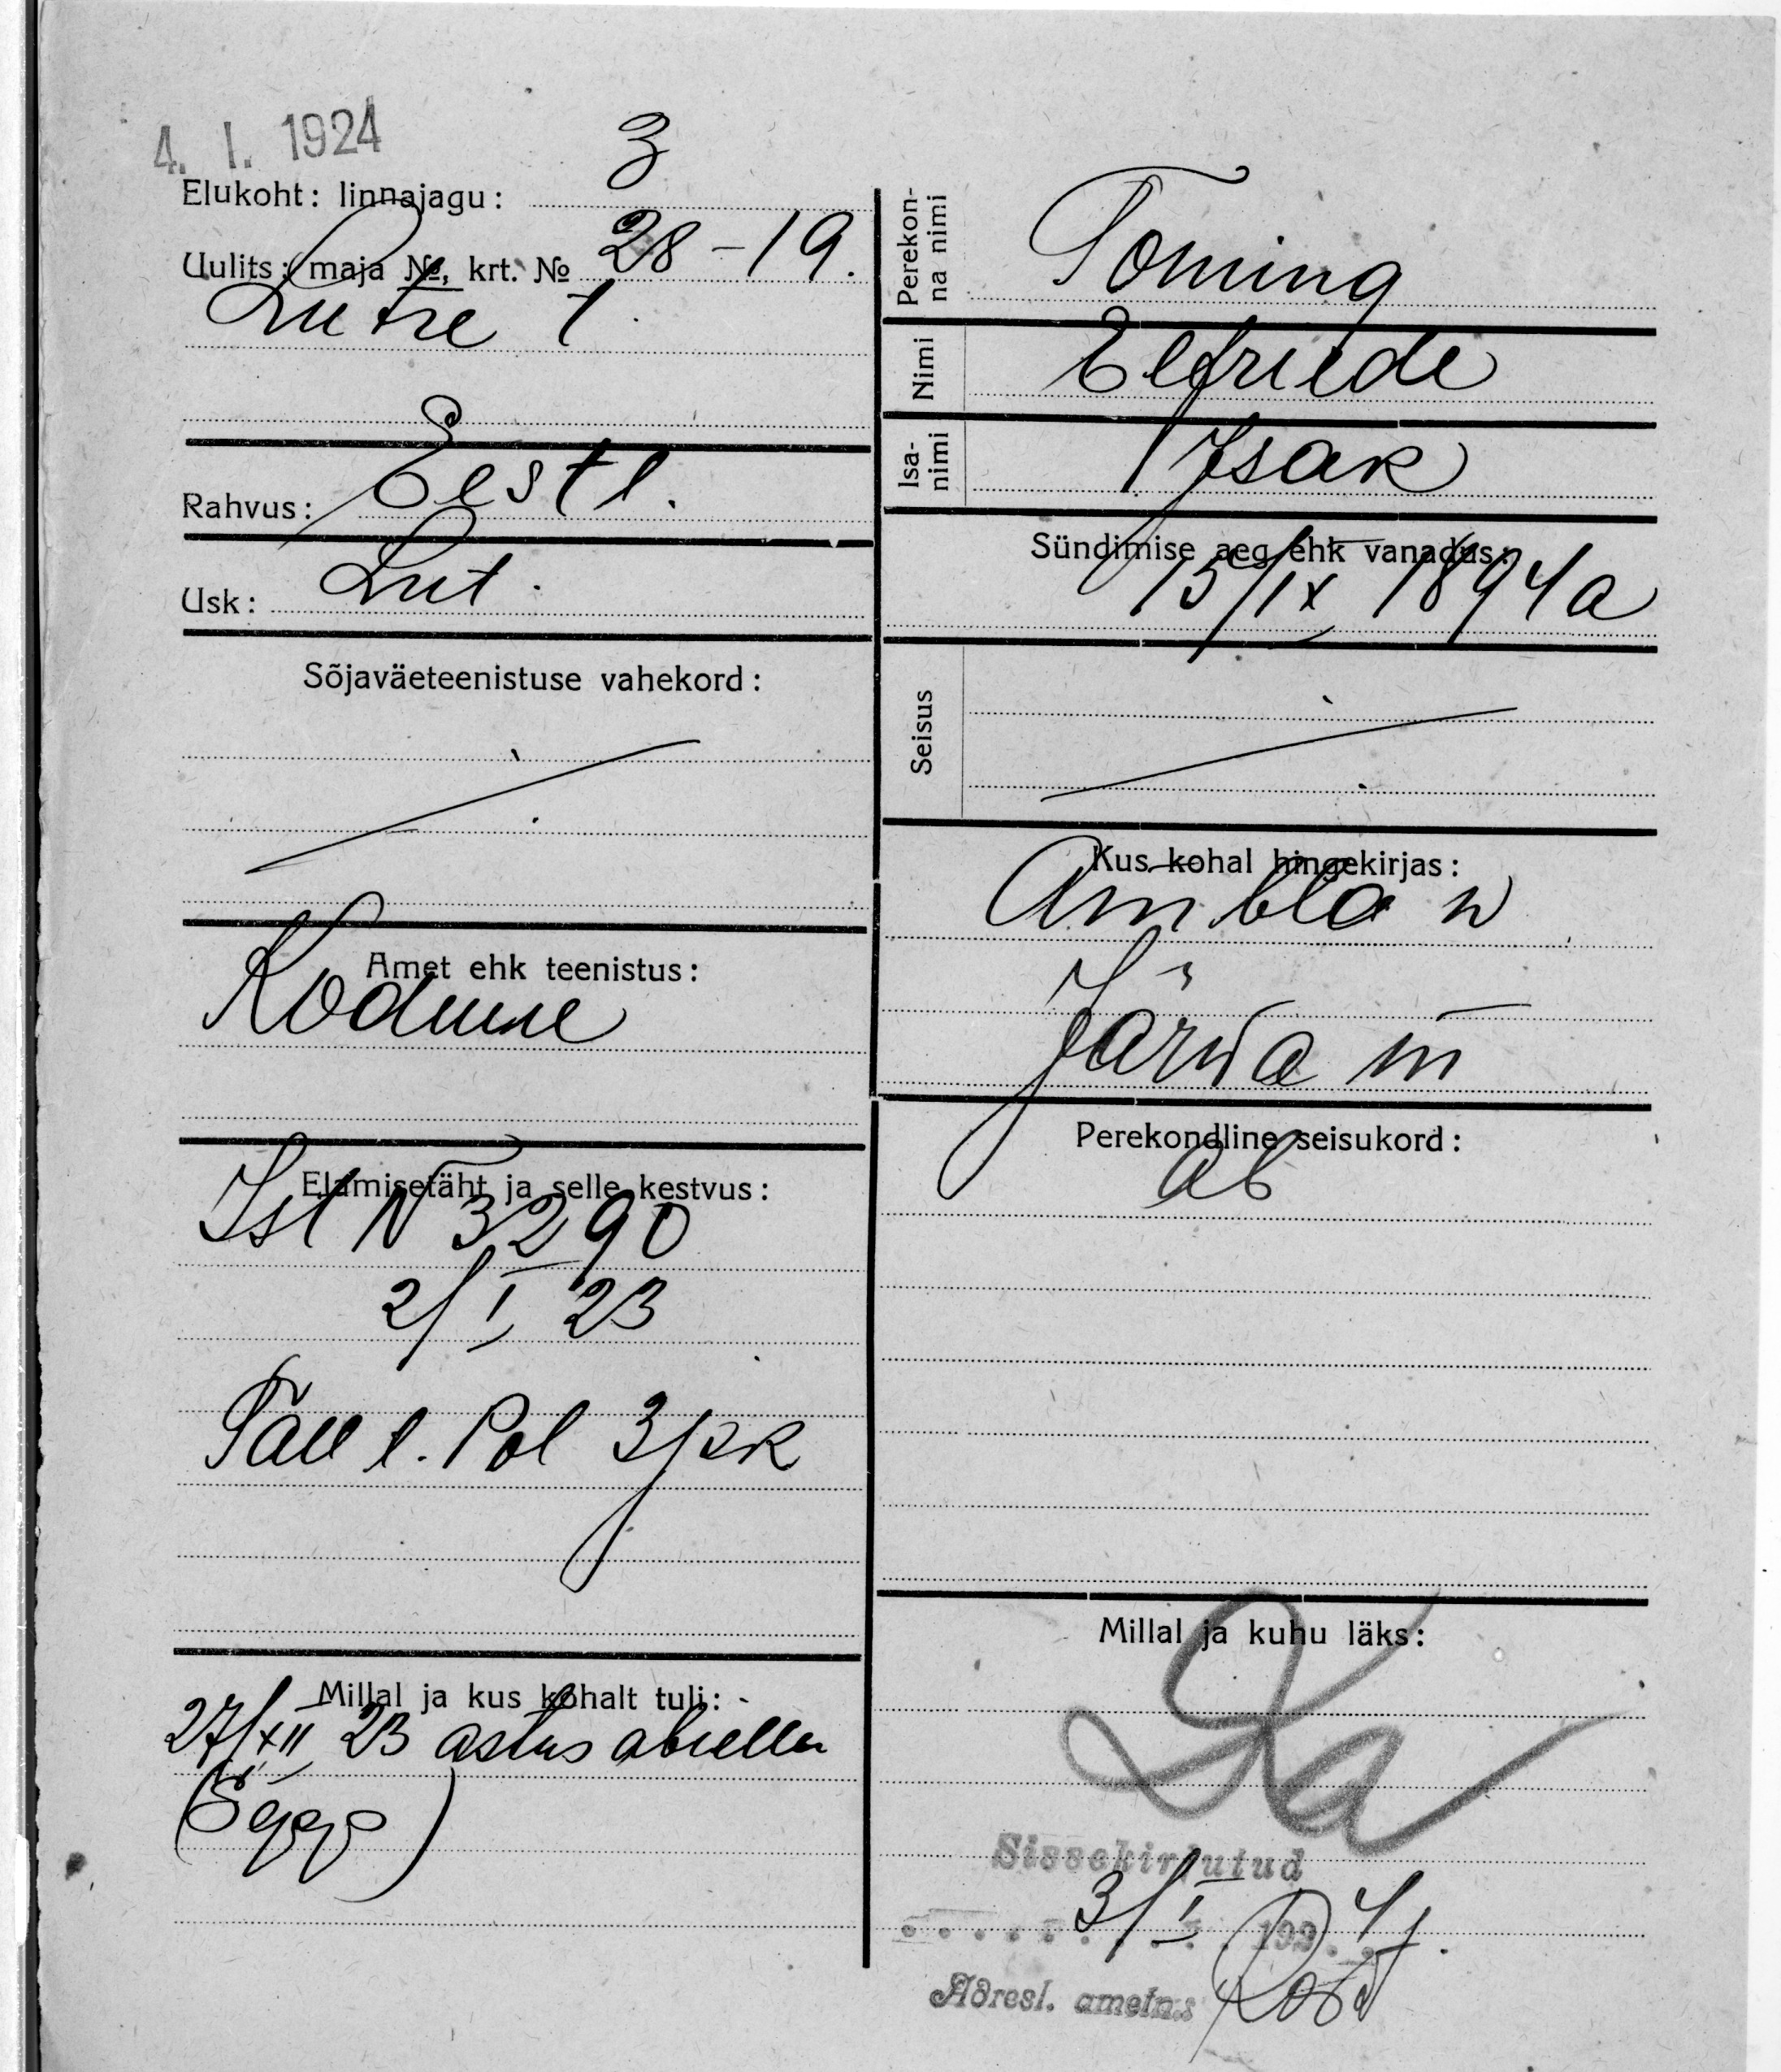 4. I. 1924
Elukoht: linnajagu: 3
Uulits: maja №, krt. № 28-19.
Lutre t.
Rahvus: Eestl.
Usk: Lut.
Sõjaväeteenistuse vahekord:
Amet ehk teenistus:
Kodune
Elamisetäht ja selle kestvus:
Ist N 3290
2/I 23
Tall l. Pol 3 jsk
Millal ja kus kohalt tuli:
27/XII 23 astus abiellu
(Sepp)
Perekon-
na nimi
Toming
Nimi Elfriede
Isa-
nimi
Isak
Sündimise aeg ehk vanadus:
15/IX 1894 a
Seisus
Kus kohal hingekirjas:
Ambla w
Järwa m
Perekondline seisukord:
ab
Millal ja kuhu läks:
Sissekirjutud
3/I 1924
Adresl. ametnik